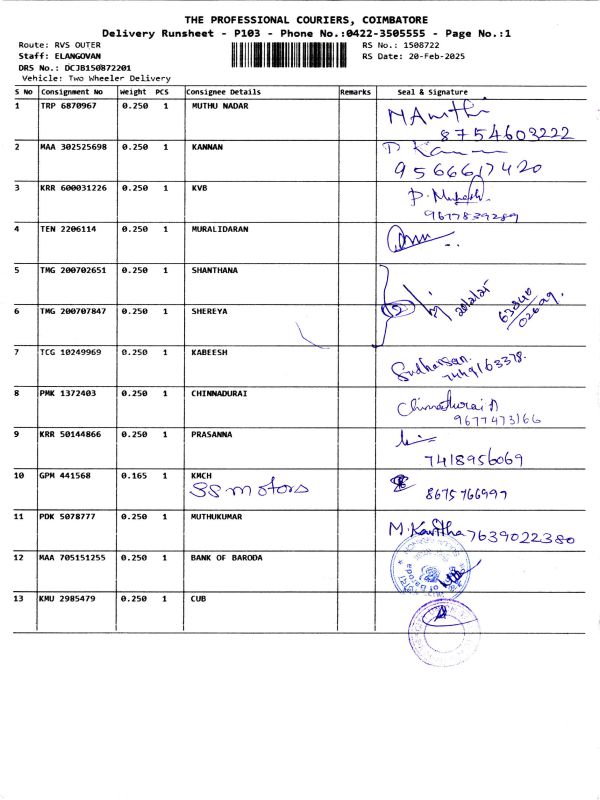 THE PROFESSIONAL COURIERS, COIMBATORE
Delivery Runsheet - P103 - Phone No.:0422-3505555 - Page No.:1
Route: RVS OUTER
RS No.: 1508722
Staff: ELANGOVAN
RS Date: 20-Feb-2025
DRS No.: DCJB150872201
Vehicle: Two Wheeler Delivery
S No Consignment No Weight PCS Consignee Details Remarks Seal & Signature
1 TRP 6870967 0.250 1 MUTHU NADAR
8754603222
2 MAA 302525698 0.250 1 KANNAN
9566617420
3 KRR 600031226 0.250 1 KVB
9677839289
4 TEN 2206114 0.250 1 MURALIDARAN
5 TMG 200702651 0.250 1 SHANTHANA
6 TMG 200707847 0.250 1 SHEREYA
7 TCG 10249969 0.250 1 KABEESH Sudharsan.
7449163378.
8 PMK 1372403 0.250 1 CHINNADURAI Chinnadurai
9677473166
9 KRR 50144866 0.250 1 PRASANNA
7418956069
10 GPM 441568 0.165 1 KMCH
SS motors 8675766997
11 PDK 5078777 0.250 1 MUTHUKUMAR M. Kavitha 7639022380
12 MAA 705151255 0.250 1 BANK OF BARODA
13 KMU 2985479 0.250 1 CUB